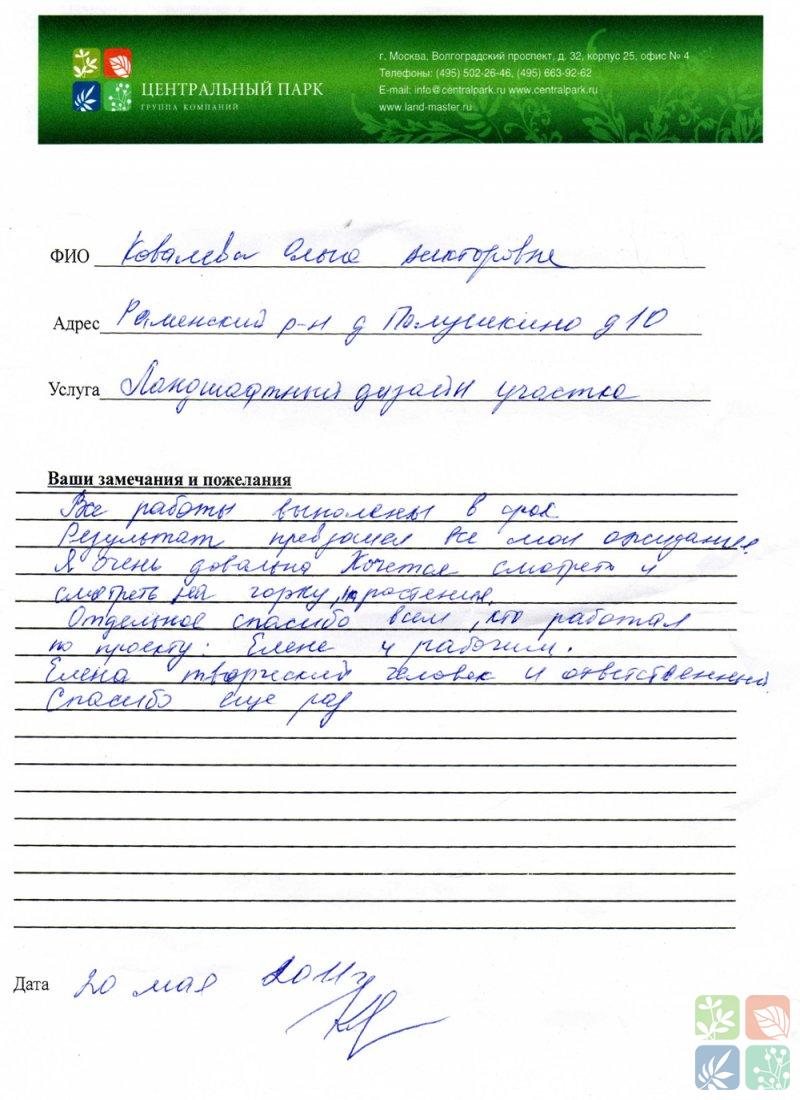 ЦЕНТРАЛЬНЫЙ ПАРК
ГРУППА КОМПАНИЙ
г. Москва, Волгоградский проспект, д. 32, корпус 25, офис № 4
Телефоны: (495) 502-26-46, (495) 663-92-62
E-mail: info@centralpark.ru www.centralpark.ru
www.land-master.ru
ФИО Ковалева Ольга Викторовна
Адрес Раменский р-н д Полушкино д 10
Услуга Ландшафтный дизайн участка
Ваши замечания и пожелания
Все работы выполнены в срок
Результат превзошел все мои ожидания.
Я очень довольна Хочется смотреть и
смотреть на горку, на растения.
Отдельное спасибо всем, кто работал
по проекту: Елене и рабочим.
Елена творческий человек и ответственный.
Спасибо еще раз
Дата 20 мая 2011г